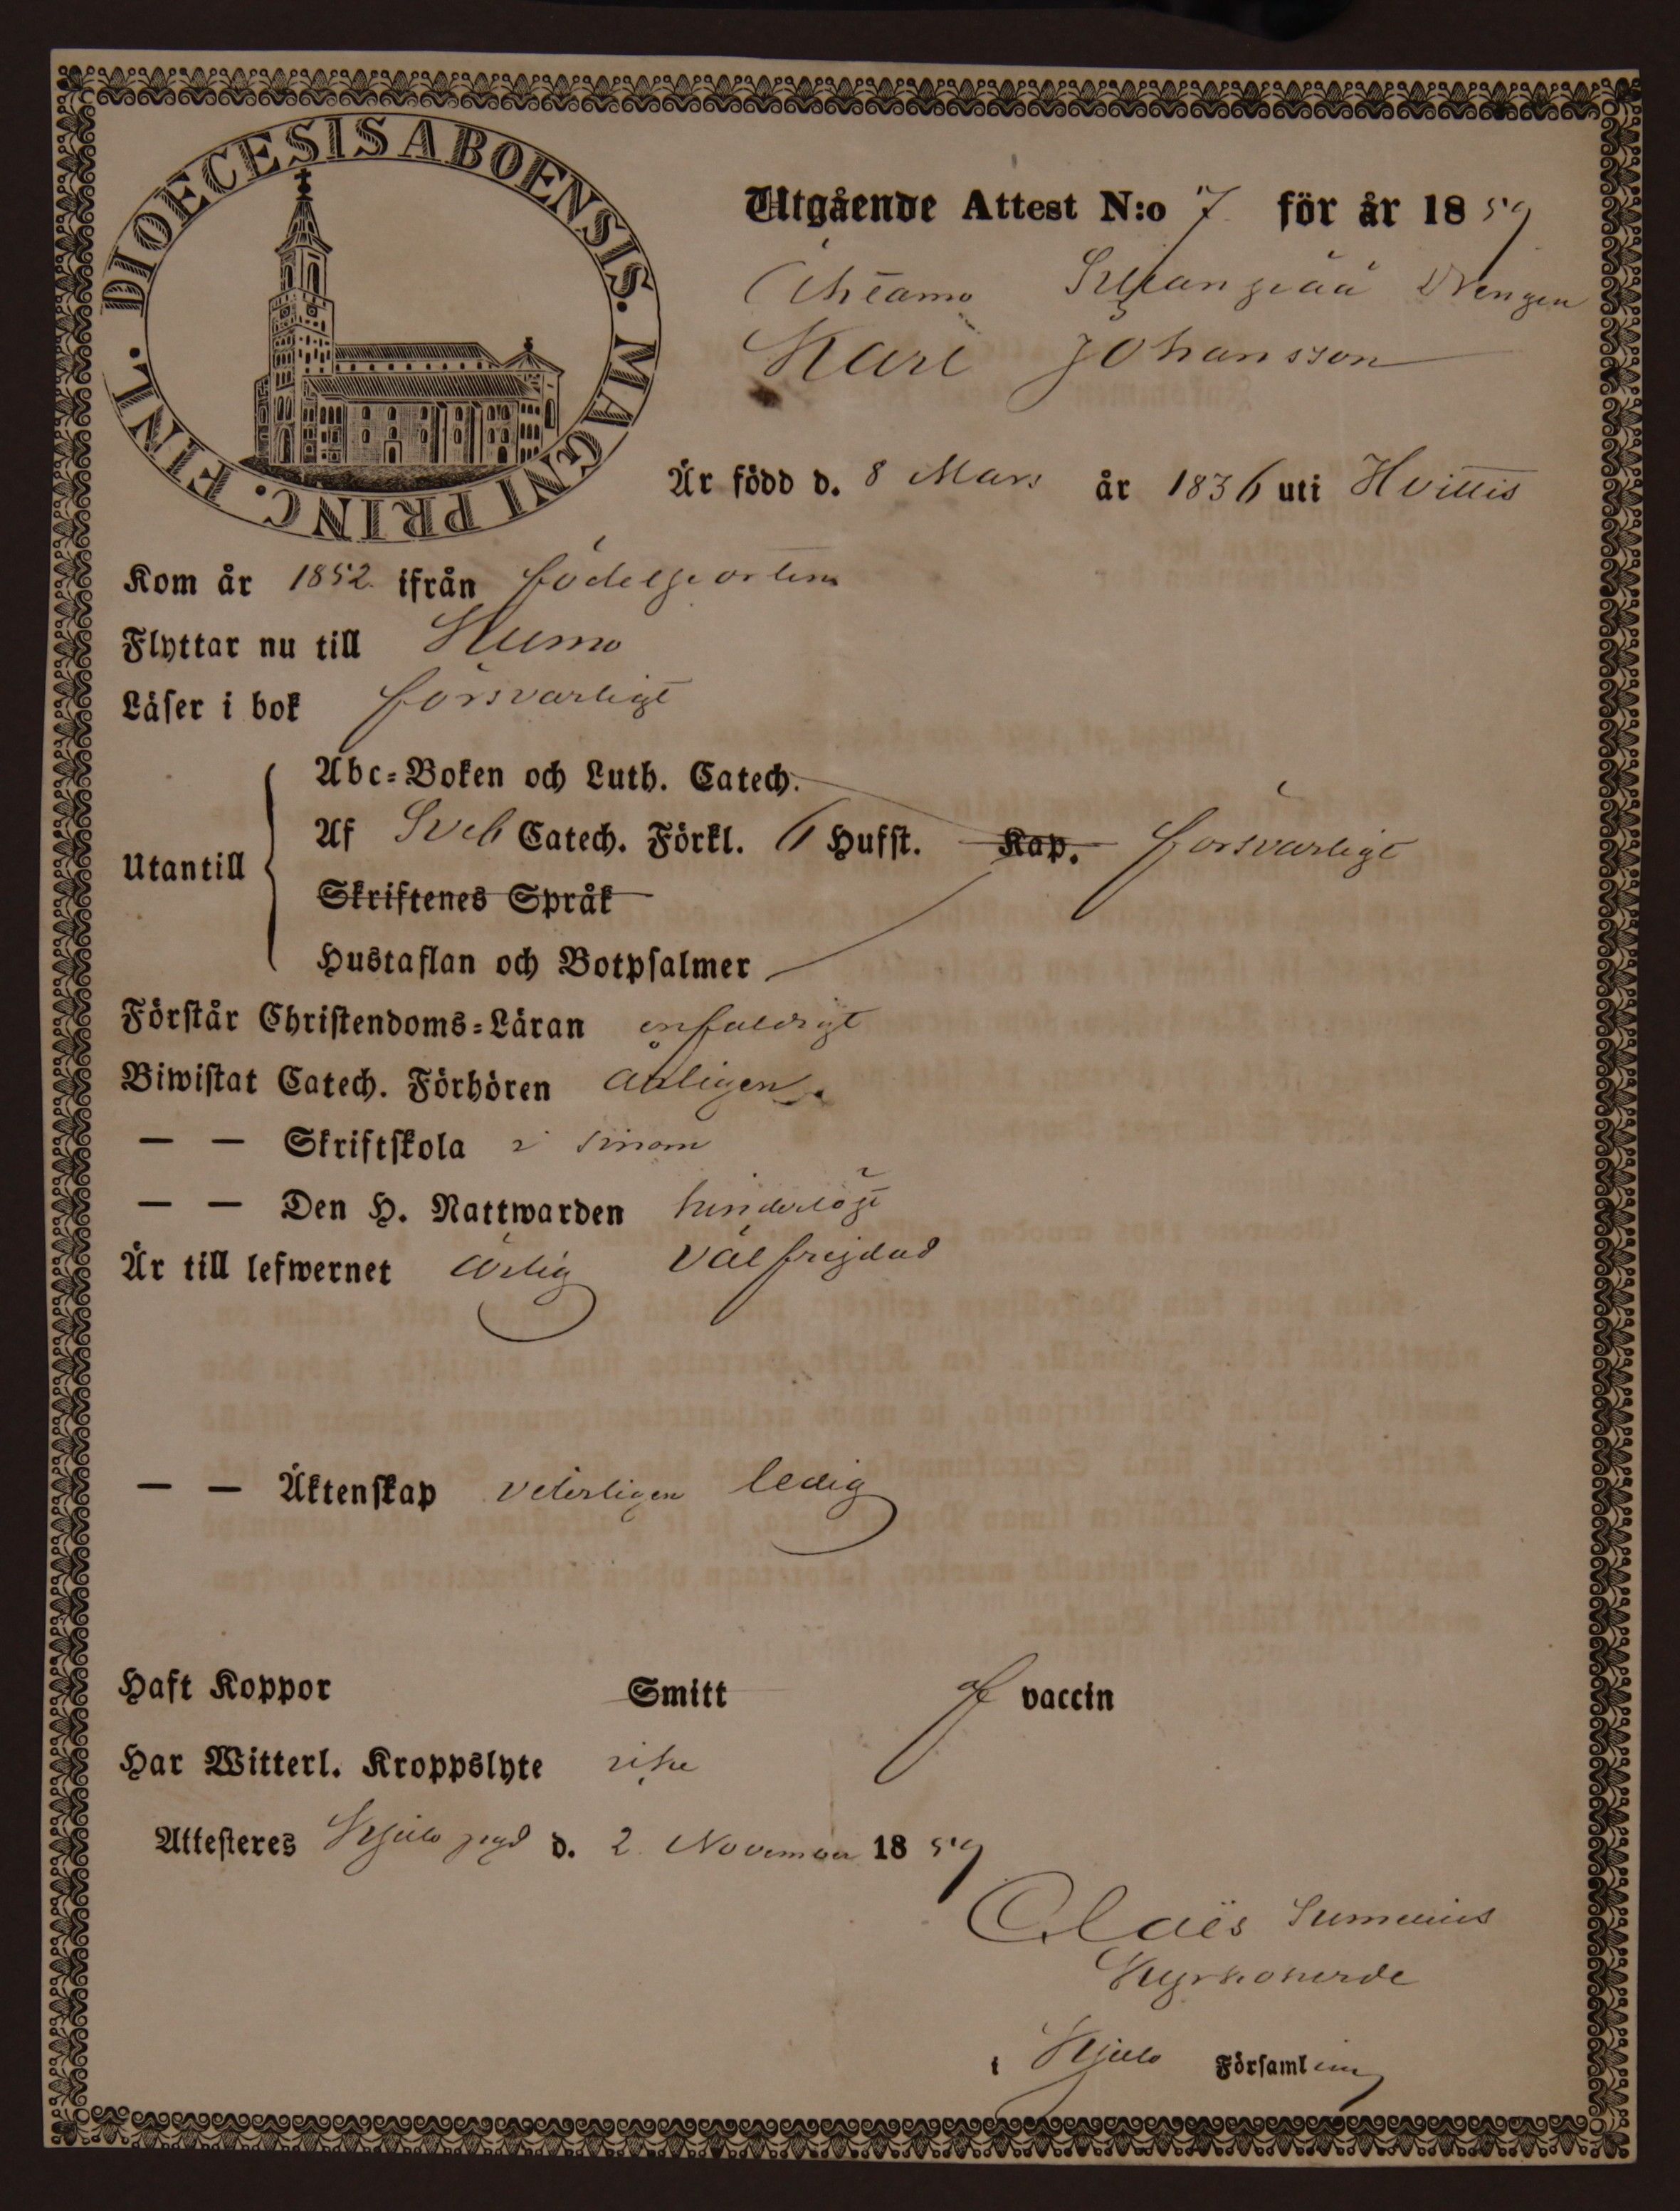 DIOECESIS ABOENSIS. MAGNI PRINC. FINL.
Utgående Attest N:o 7 för år 1859
Drengen
Karl Johansson
Är född d. 8 Mars år 1836 uti Hvittis
Kom år 1852. ifrån födelseorten
Flyttar nu till Kumo
Läser i bok försvarligt
Utantill
Abc-Boken och Luth. Catech.
Af Sveb Catech. Förkl. 6 Hufst. Kap. försvarligt
Skriftenes Språk
Hustaflan och Botpsalmer
Förstår Christendoms-Läran enfaldigt
Biwistat Catech. Förhören årligen
— — Skriftskola i sinom
— — Den H. Nattwarden hinderlöst
Är till lefwernet ärlig väl frejdad
— — Äktenskap veterligen ledig
Haft Koppor Smitt af vaccin
Har Witterl. Kroppslyte icke
Attesteres Kjulo pgd d. 2 November 1859
Claës
Kyrkoherde
i Kjulo Församling